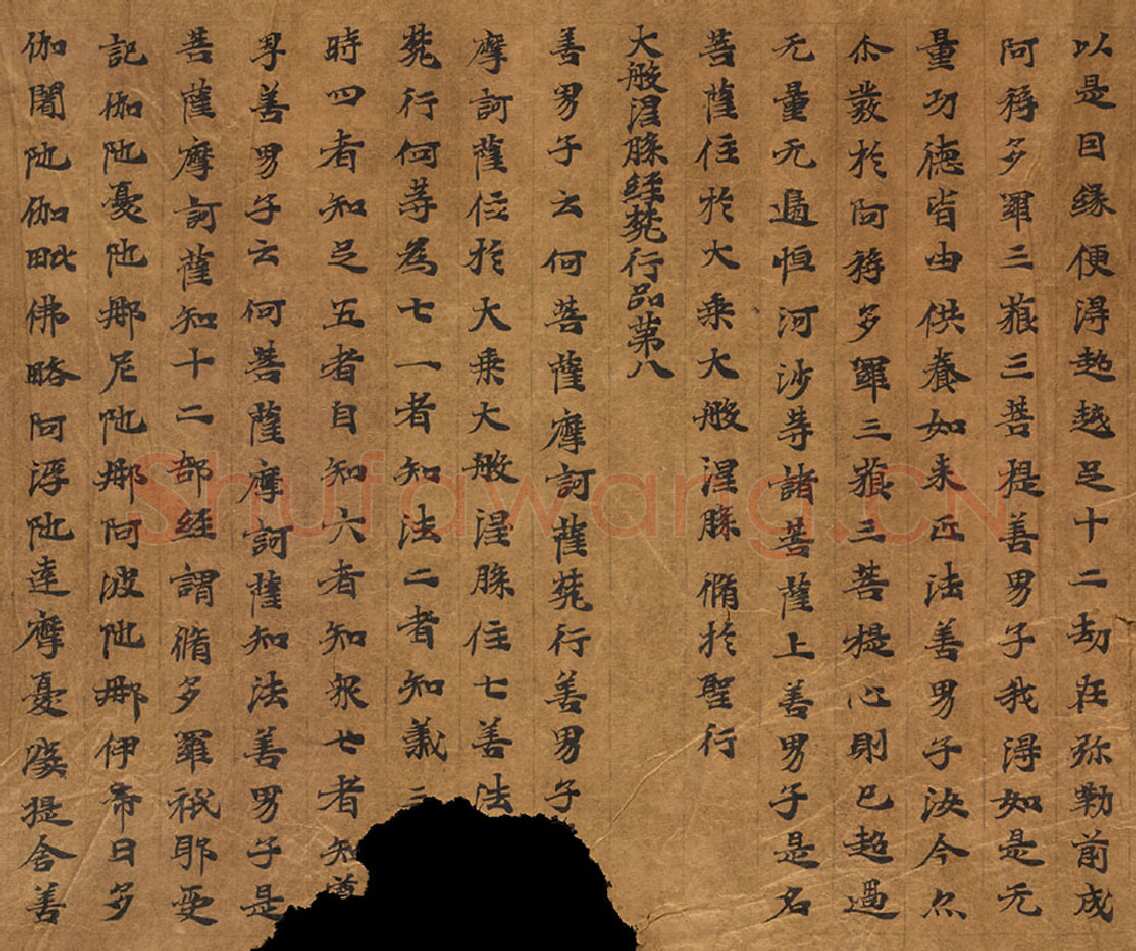 以是因緣便得超越足十二劫在弥勒前成
阿耨多羅三藐三菩提善男子我得如是无
量功德皆由供養如来正法善男子汝今亦
尒發於阿耨多羅三藐三菩提心則已超過
无量无邊恒河沙等諸菩薩上善男子是名
菩薩住於大乘大般涅槃脩於聖行
大般涅槃經梵行品第八
善男子云何菩薩摩訶薩梵行善男子
摩訶薩住於大乘大般涅槃住七善法
梵行何等為七一者知法二者知義三
時四者知足五者自知六者知眾七者知尊
卑善男子云何菩薩摩訶薩知法善男子是
菩薩摩訶薩知十二部經謂脩多羅祇耶受
記伽陁憂陁那尼陁那阿波陁那伊帝曰多
伽闍陁伽毗佛略阿浮陁達摩憂波提舍善
Shufawang.CN